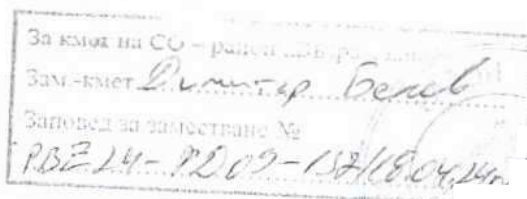 За кмет на СО – район
Зам.-кмет Димитър Белев
Заповед за заместване №
РВЕ24-РД09-137/18.04.24г.